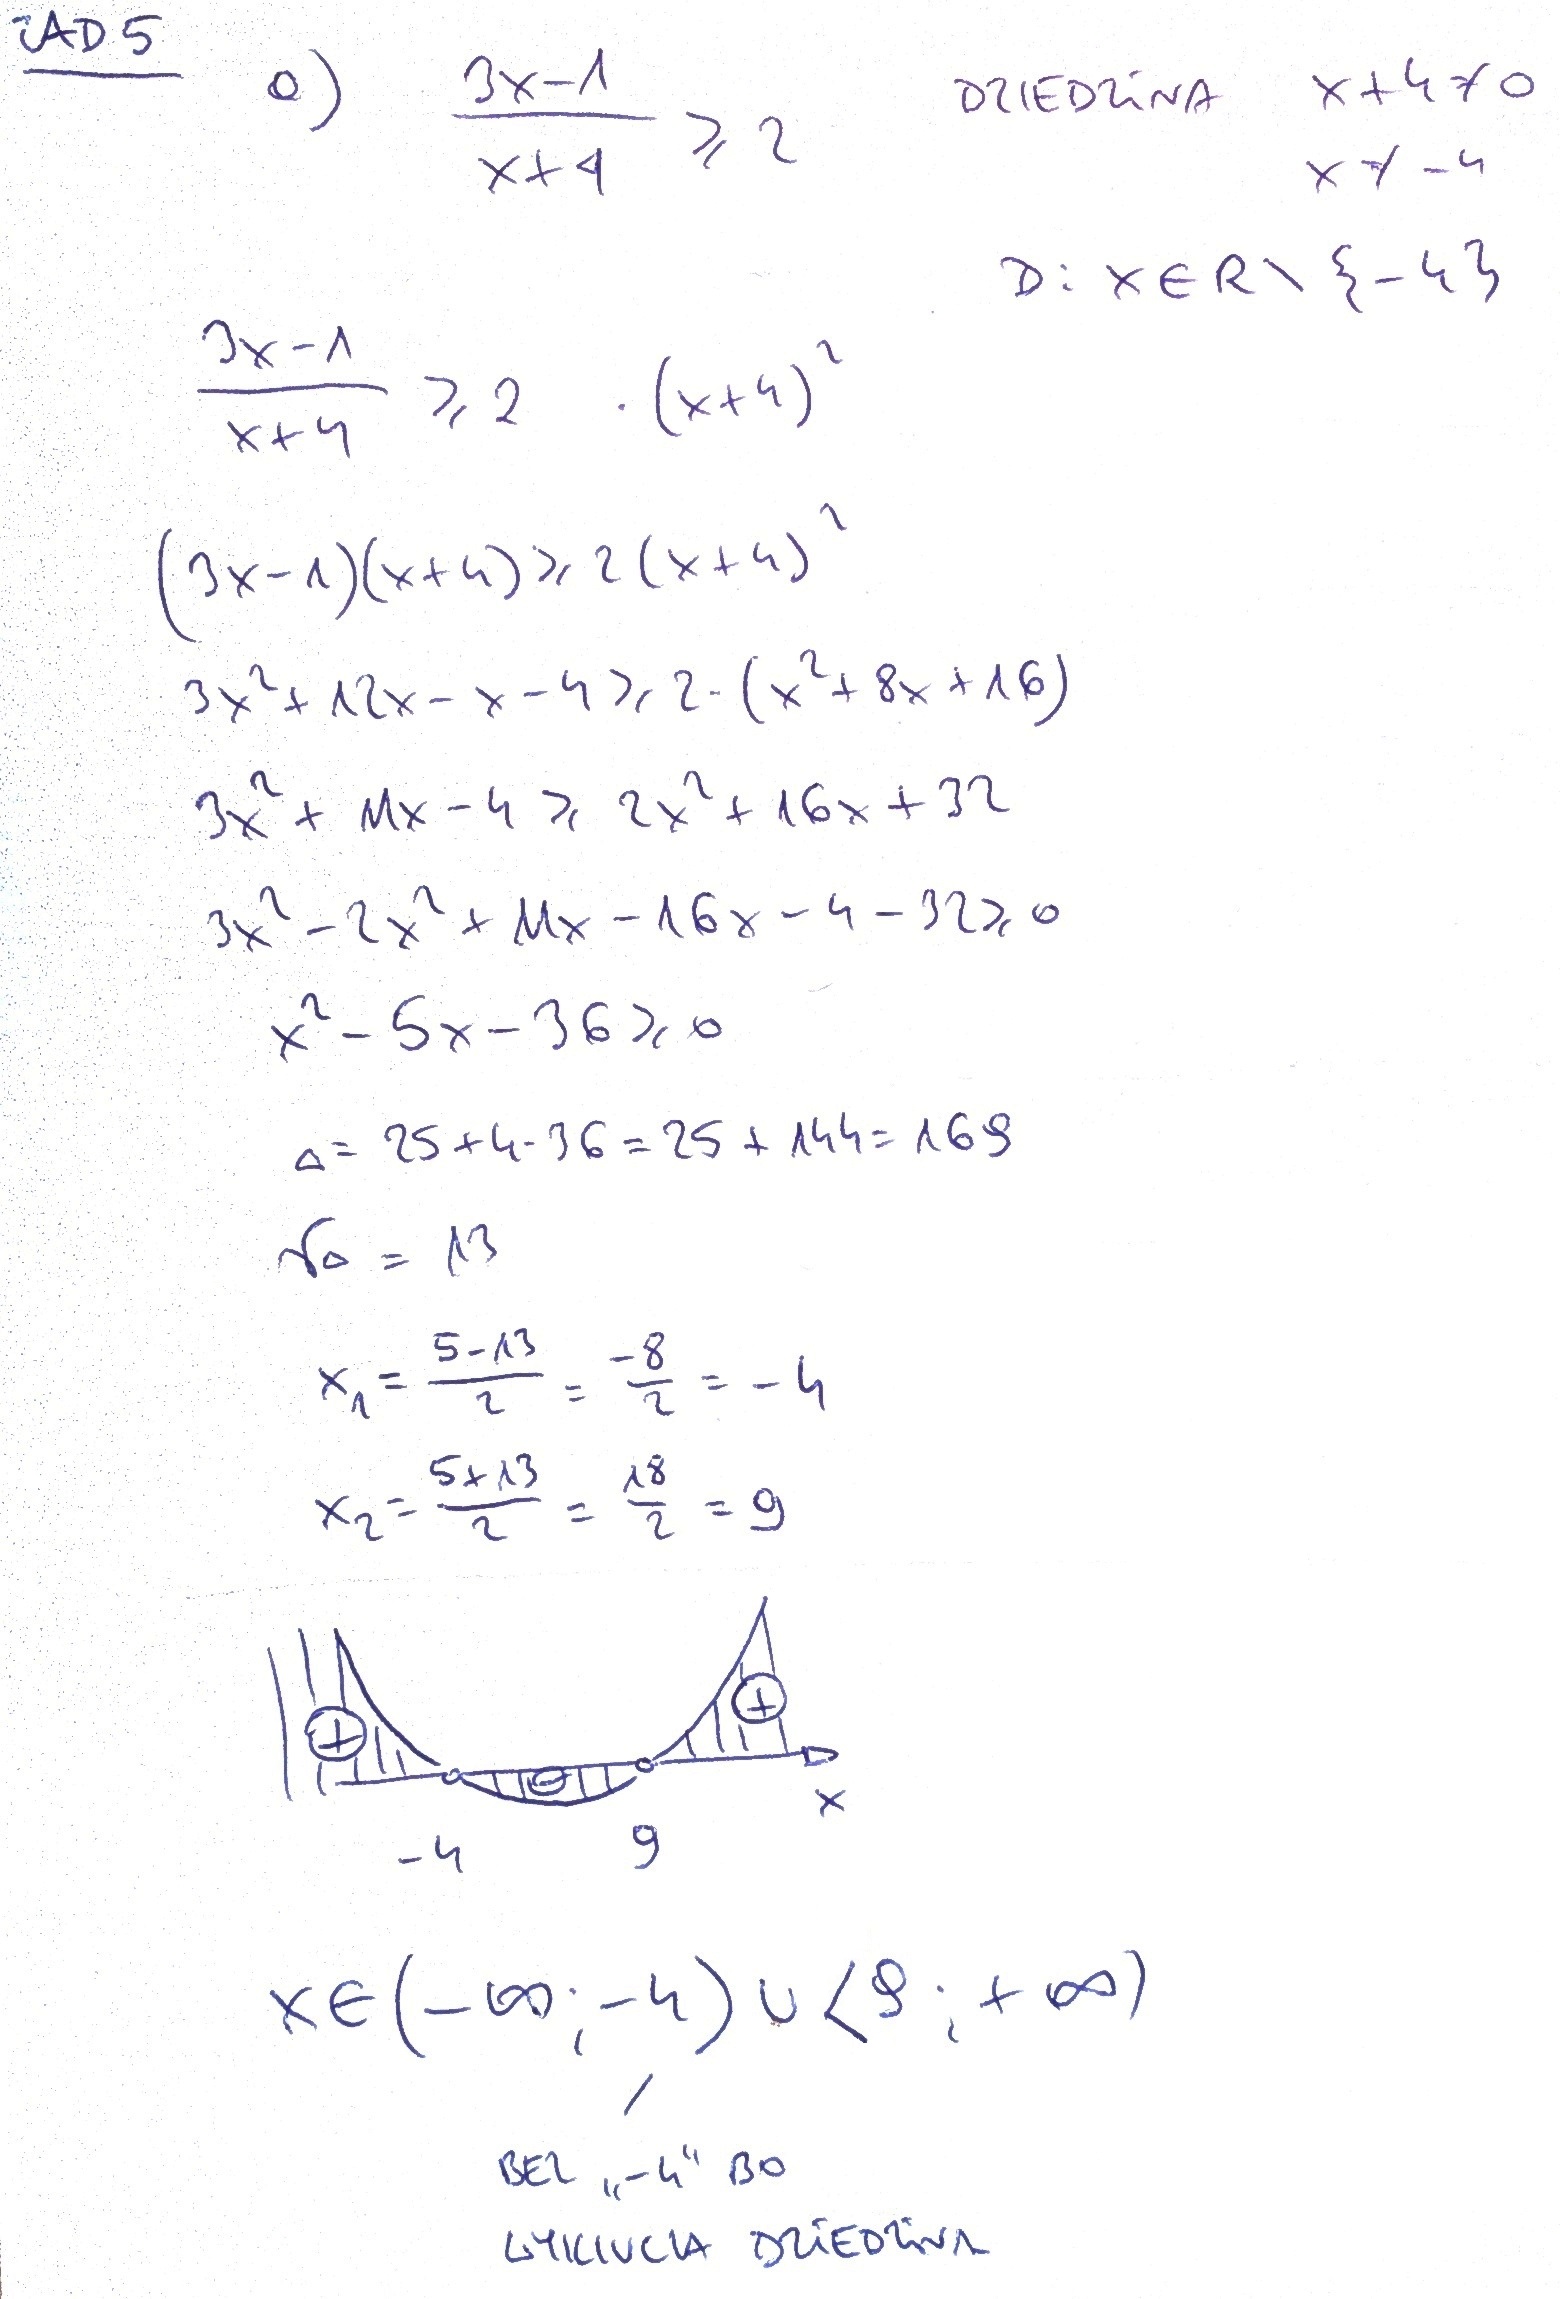 ZAD 5
a) (3x-1)/(x+4) ⩾ 2 DZIEDZINA x+4≠0
x≠-4
D: x∈R\{-4}
(3x-1)/(x+4) ⩾ 2 ·(x+4)²
(3x-1)(x+4)⩾2(x+4)²
3x²+12x-x-4⩾2·(x²+8x+16)
3x²+11x-4⩾2x²+16x+32
3x²-2x²+11x-16x-4-32⩾0
x²-5x-36⩾0
Δ=25+4·36=25+144=169
√Δ=13
x₁=(5-13)/2=-8/2=-4
x₂=(5+13)/2=18/2=9
+ - +
x
-4 9
x∈(-∞;-4)∪<9;+∞)
BEZ „-4" BO
WYKLUCZA DZIEDZINA